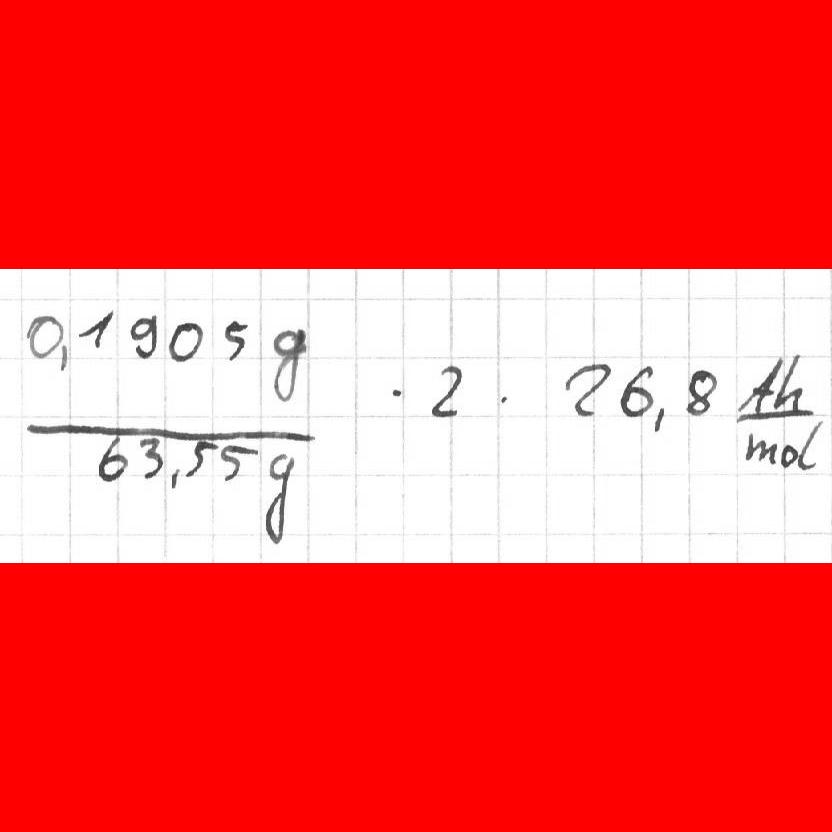 0,1905 g
63,55 g
· 2 · 26,8 Ah
mol